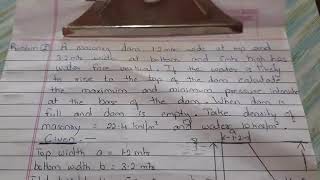 Problem ② A masonry dam 1.2 mts wide at top and
3.2 mts width at bottom and 5mts high has
water face vertical If the water is likely
to rise to the top of the dam calculate
the maximum and minimum pressure intensity
at the base of the dam. When dam is
full and dam is empty. Take density of
masonry = 22.4 kN/m³ and water 10 kN/m³.
Given:-
Top width a = 1.2 mts
bottom width b = 3.2 mts